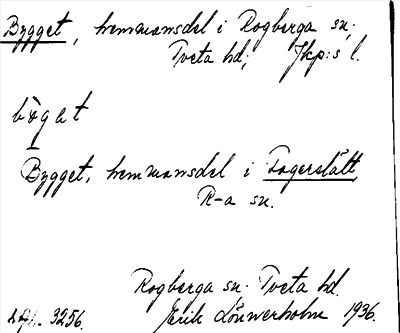 Bygget, hemmansdel i Rogberga sn;
Tveta hd; Jkp:s l.
bøgat
Bygget, hemmansdel i Fagerslätt,
R-a sn.
Rogberga sn. Tveta hd.
3256. Erik Lönnerholm 1936.